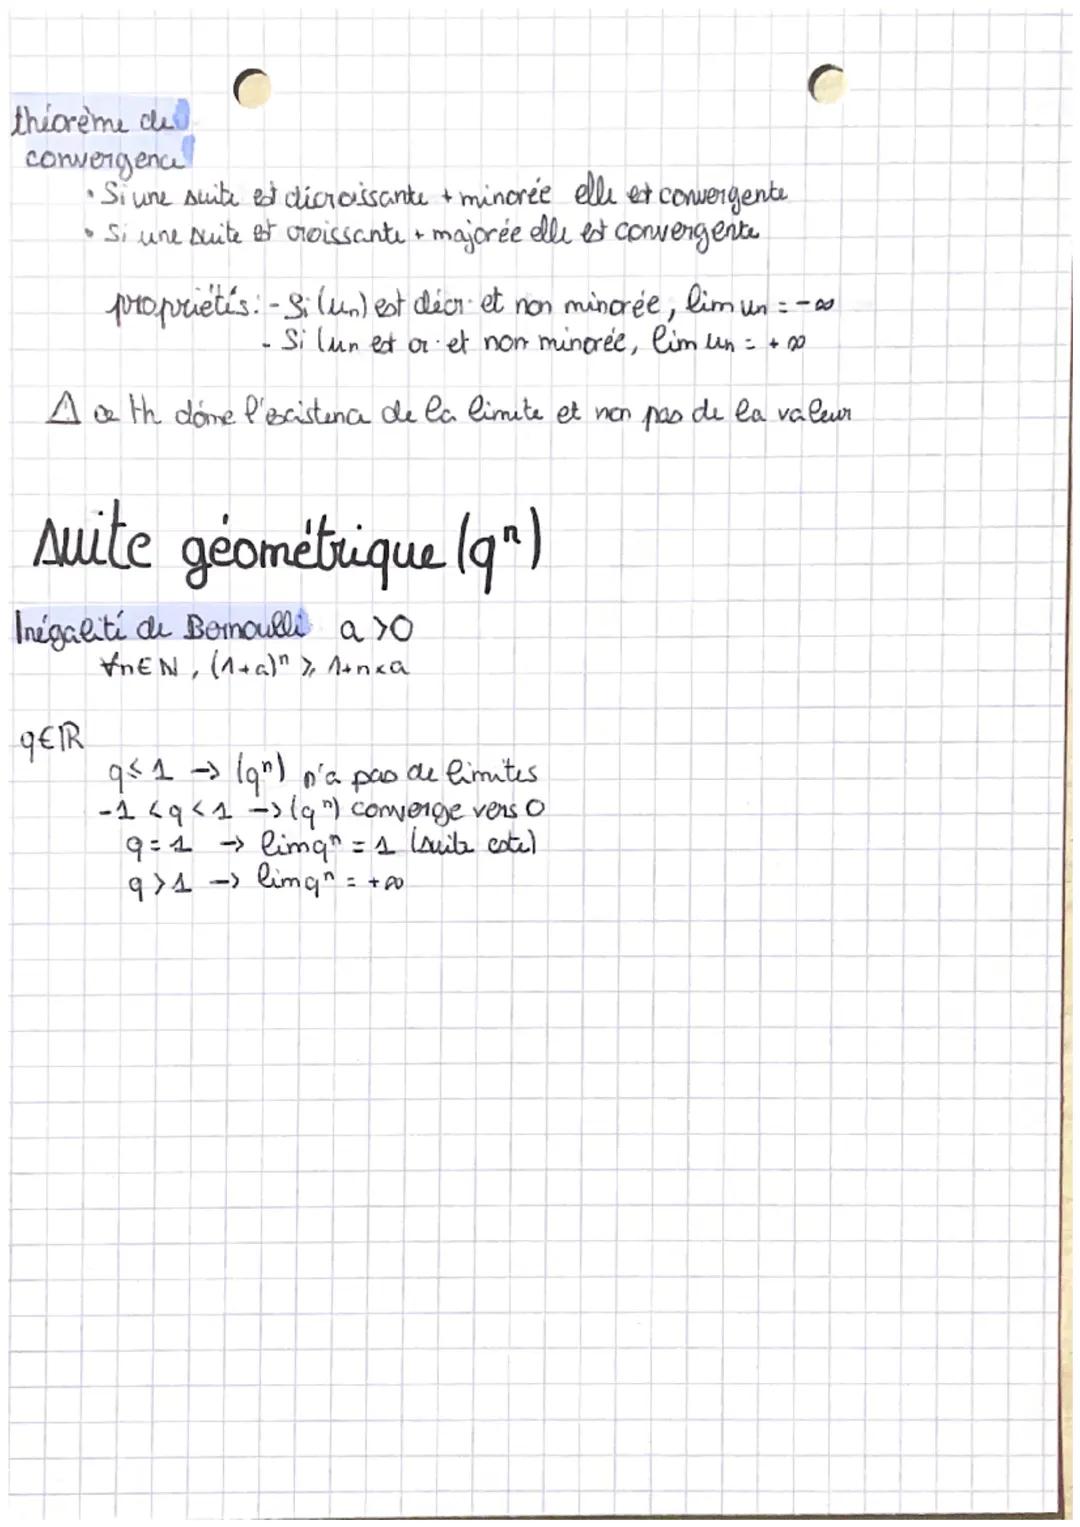 théorème de
convergence
• Si une suite est décroissante + minorée elle est convergente
• Si une suite est croissante + majorée elle est convergente
propriétés: - Si (un) est décr. et non minorée, lim un = -∞
- Si (un est cr. et non minorée, lim un = + ∞
⚠ ce th donne l'existence de la limite et non pas de la valeur
suite géométrique (qⁿ)
Inégalité de Bernoulli a >0
∀n∈ℕ, (1+a)ⁿ ⩾ 1+n×a
q∈ℝ
q≤1 → (qⁿ) n'a pas de limites
-1 <q<1 →(qⁿ) converge vers 0
q=1 → lim qⁿ = 1 (suite cste)
q>1 → lim qⁿ = +∞